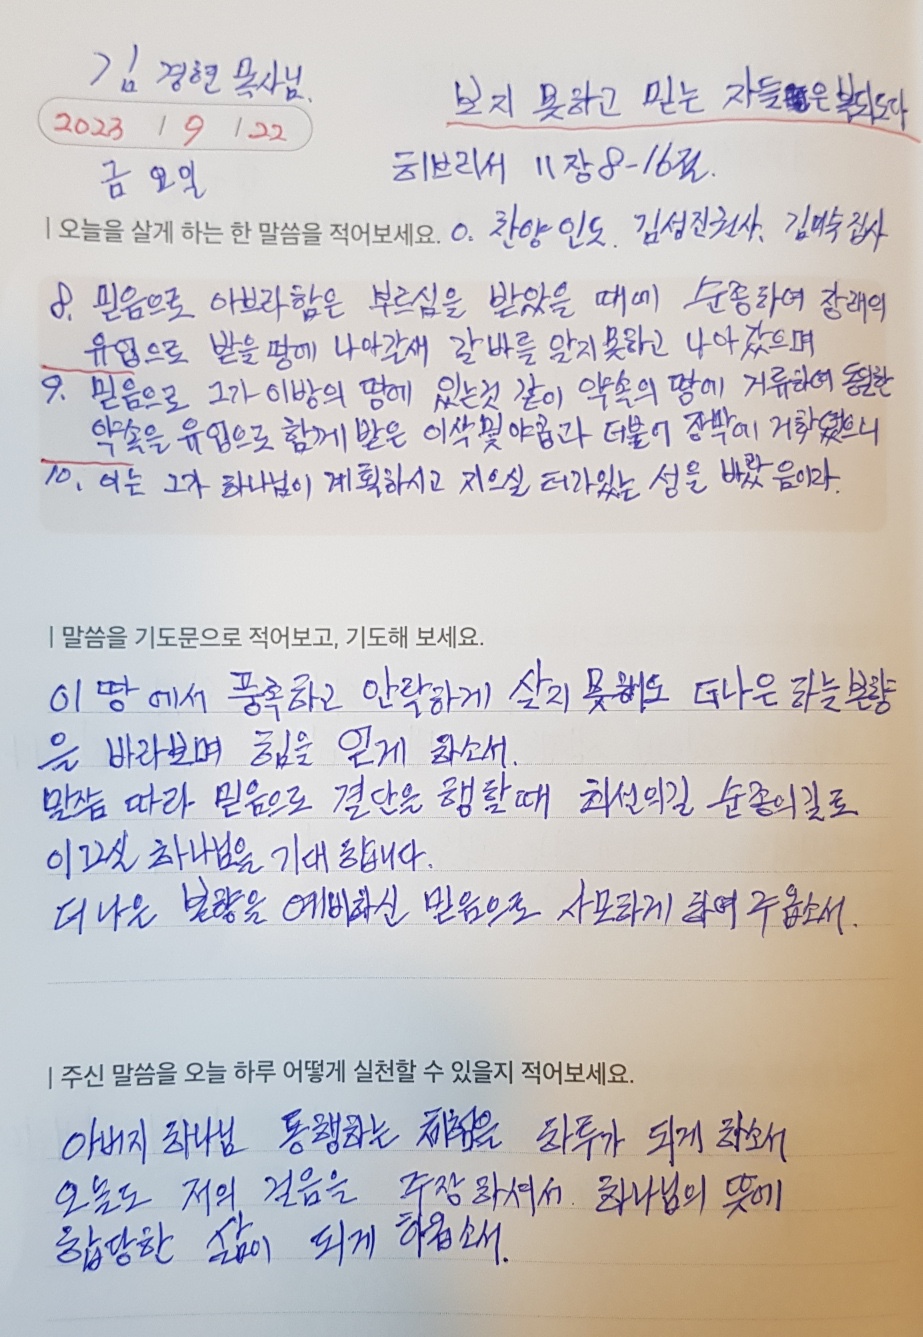 김 경현 목사님.
보지 못하고 믿는 자들은 복되도다
2023 / 9 / 22
금요일
히브리서 11장 8-16절.
| 오늘을 살게 하는 한 말씀을 적어보세요. o. 찬양인도. 김성진권사, 김미숙집사
8. 믿음으로 아브라함은 부르심을 받았을 때에 순종하여 장래의
유업으로 받을 땅에 나아갈새 갈바를 알지못하고 나아갔으며
9. 믿음으로 그가 이방의 땅에 있는것 같이 약속의 땅에 거류하여 동일한
약속을 유업으로 함께 받은 이삭및야곱과 더불어 장막에 거하였으니
10. 이는 그가 하나님이 계획하시고 지으실 터가있는 성을 바랐음이라.
| 말씀을 기도문으로 적어보고, 기도해 보세요.
이 땅에서 풍족하고 안락하게 살지 못해도 더나은 하늘본향
을 바라보며 힘을 얻게 하소서.
말씀 따라 믿음으로 결단을 행할때 최선의길 순종의길로
이끄실 하나님을 기대합니다.
더 나은 본향을 예비하신 믿음으로 사모하게 하여 주옵소서.
| 주신 말씀을 오늘 하루 어떻게 실천할 수 있을지 적어보세요.
아버지 하나님 동행하는 체험을 하루가 되게 하소서
오늘도 저의 걸음을 주장하셔서 하나님의 뜻에
합당한 삶이 되게 하옵소서.